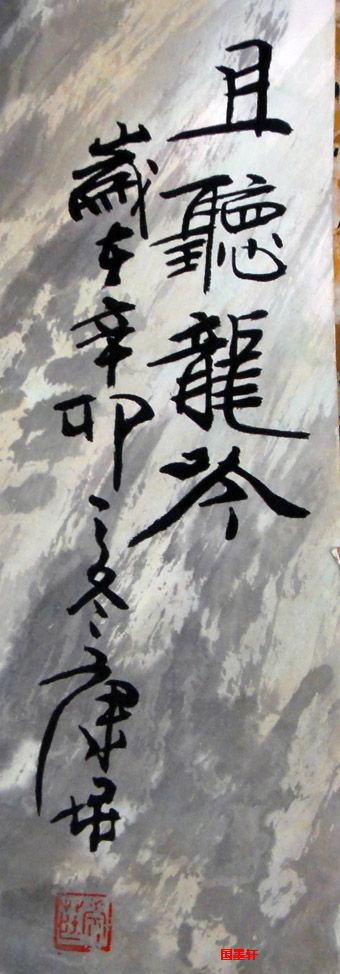 且聽龍吟
歲在辛卯之冬康
国墨轩